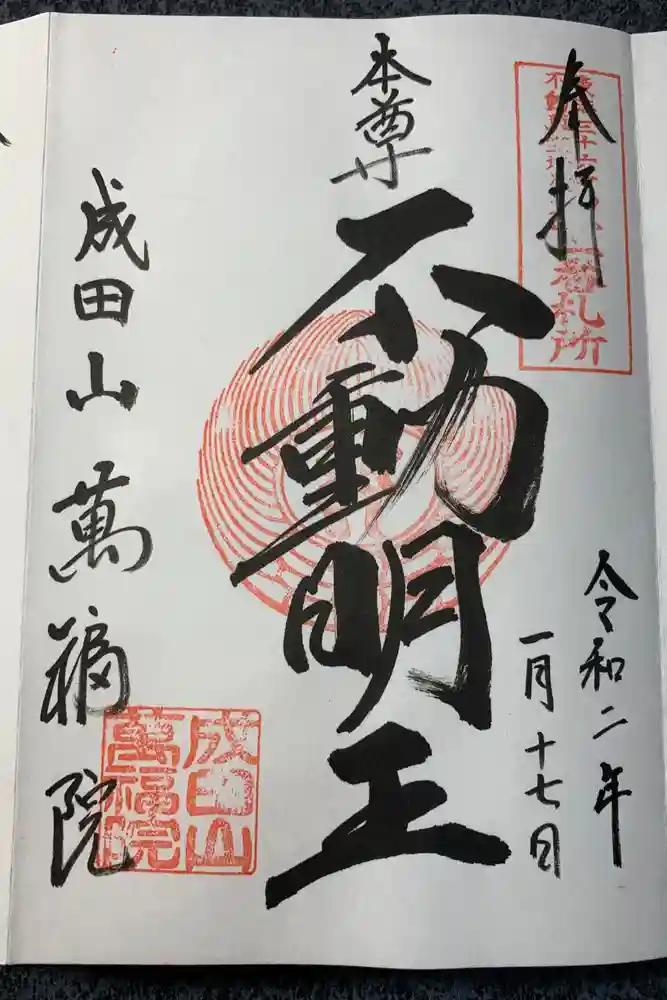 奉拝
三十六
不動
一番札所
令和二年
一月十七日
本尊
不動明王
成田山萬福院
成田山
萬福院